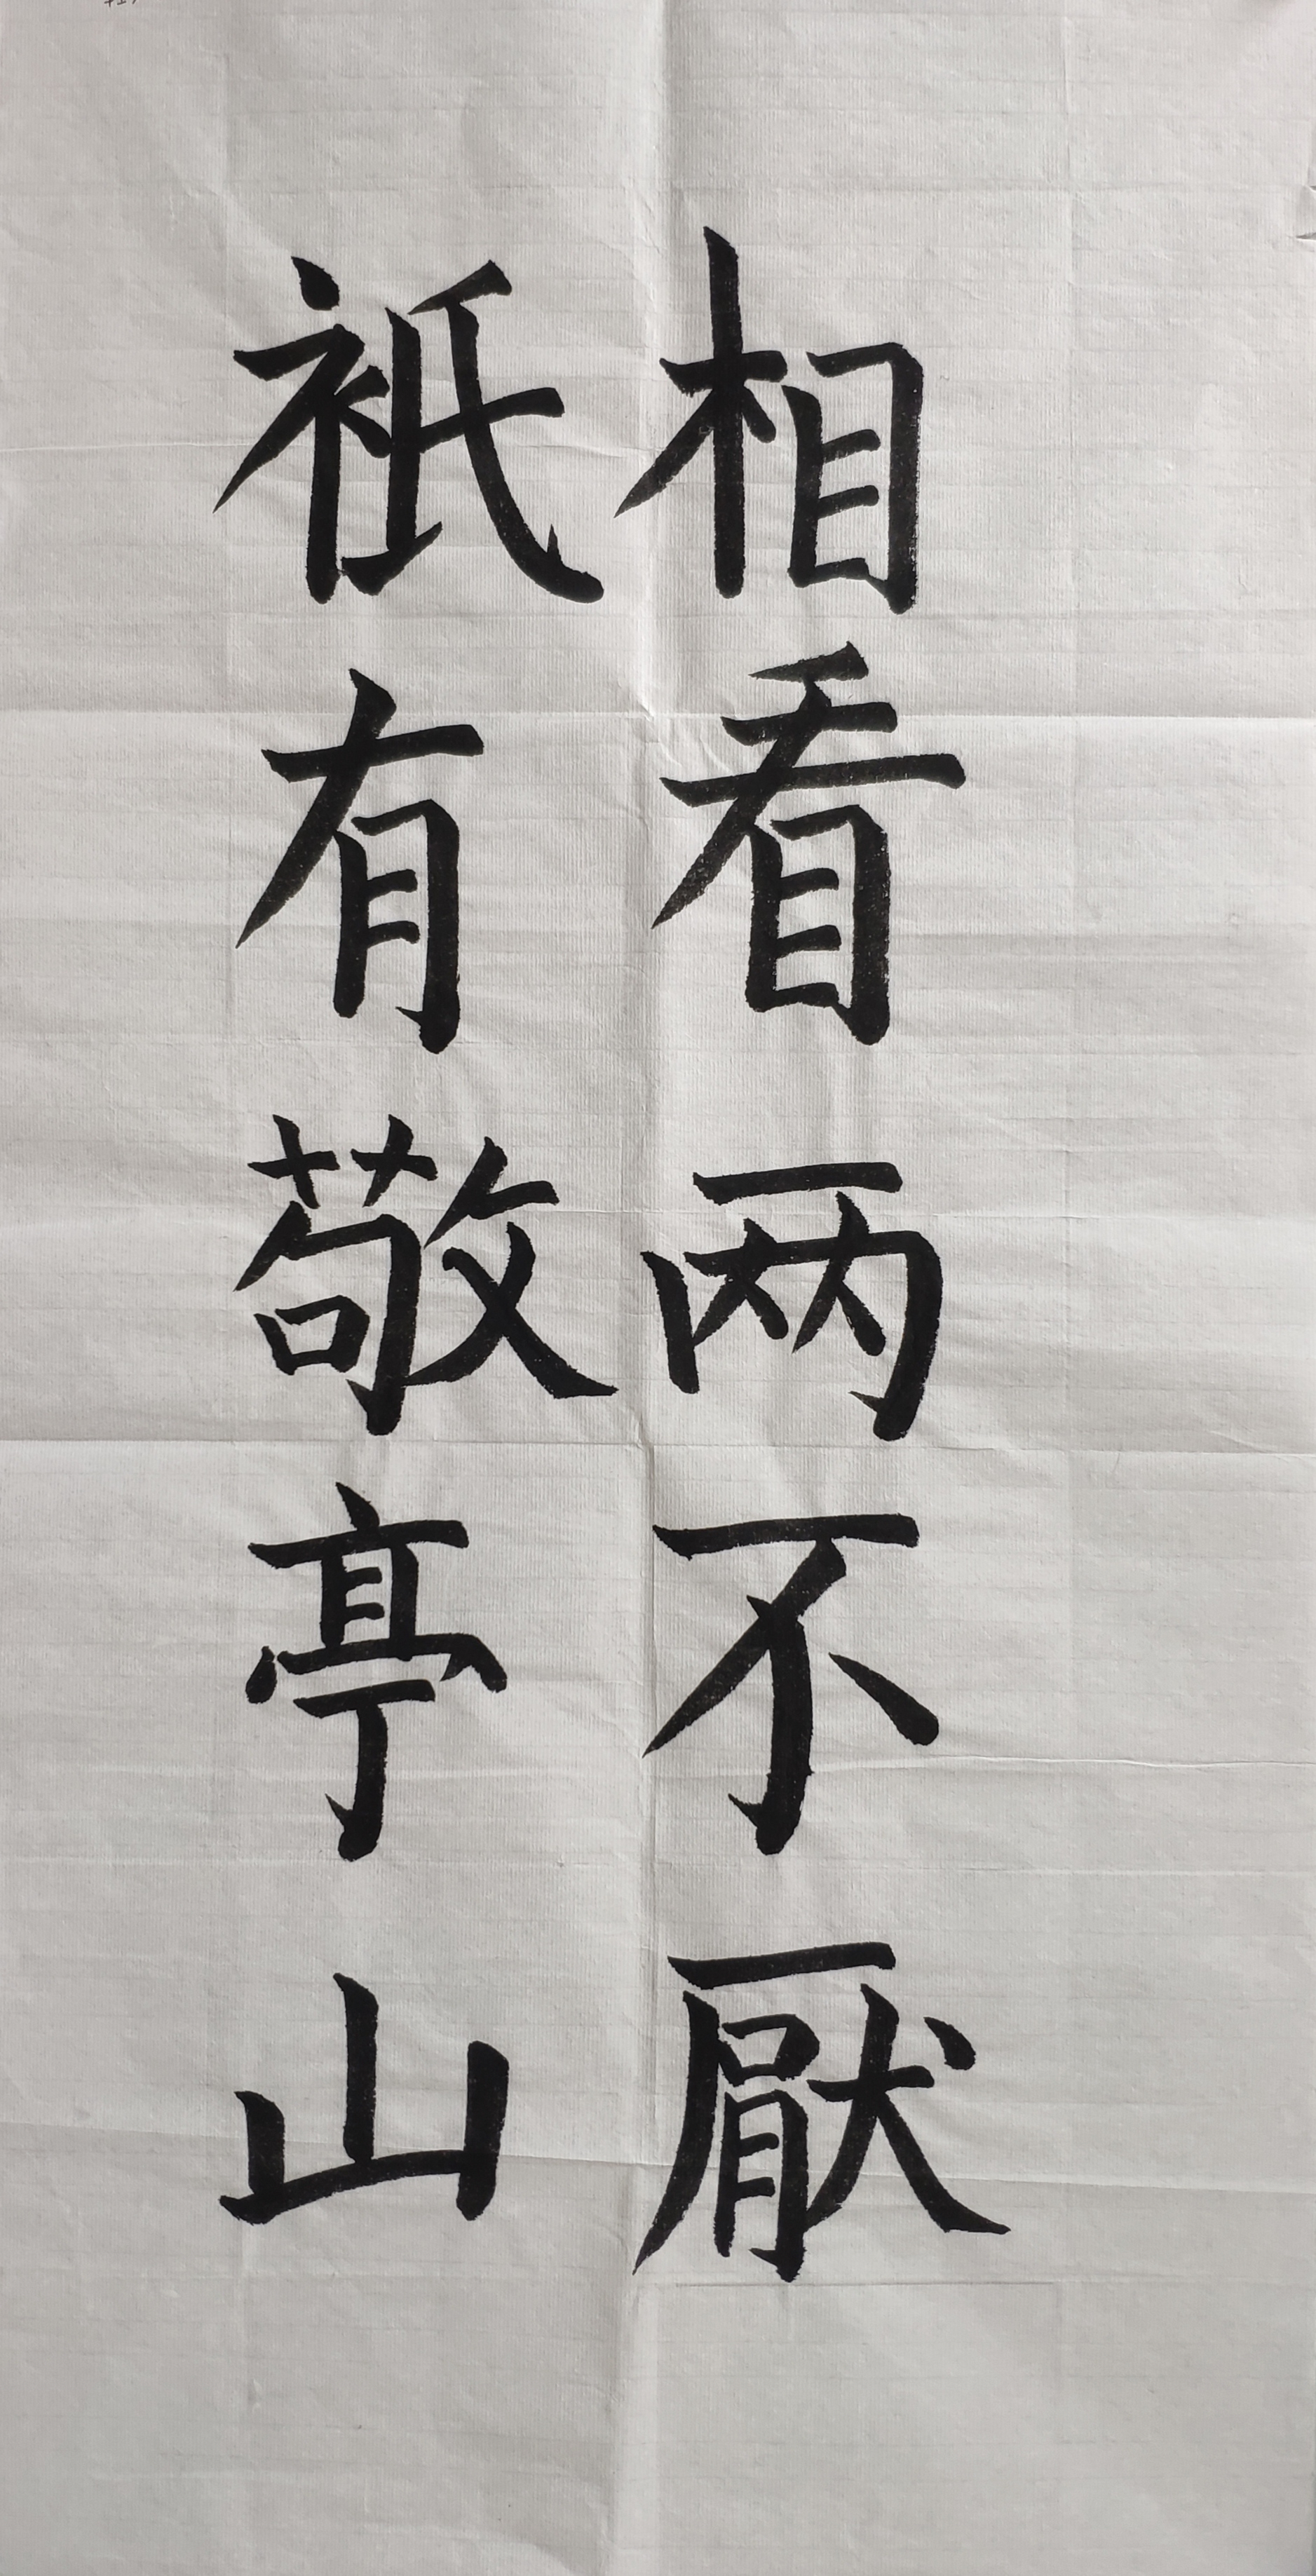 相看两不厭
衹有敬亭山